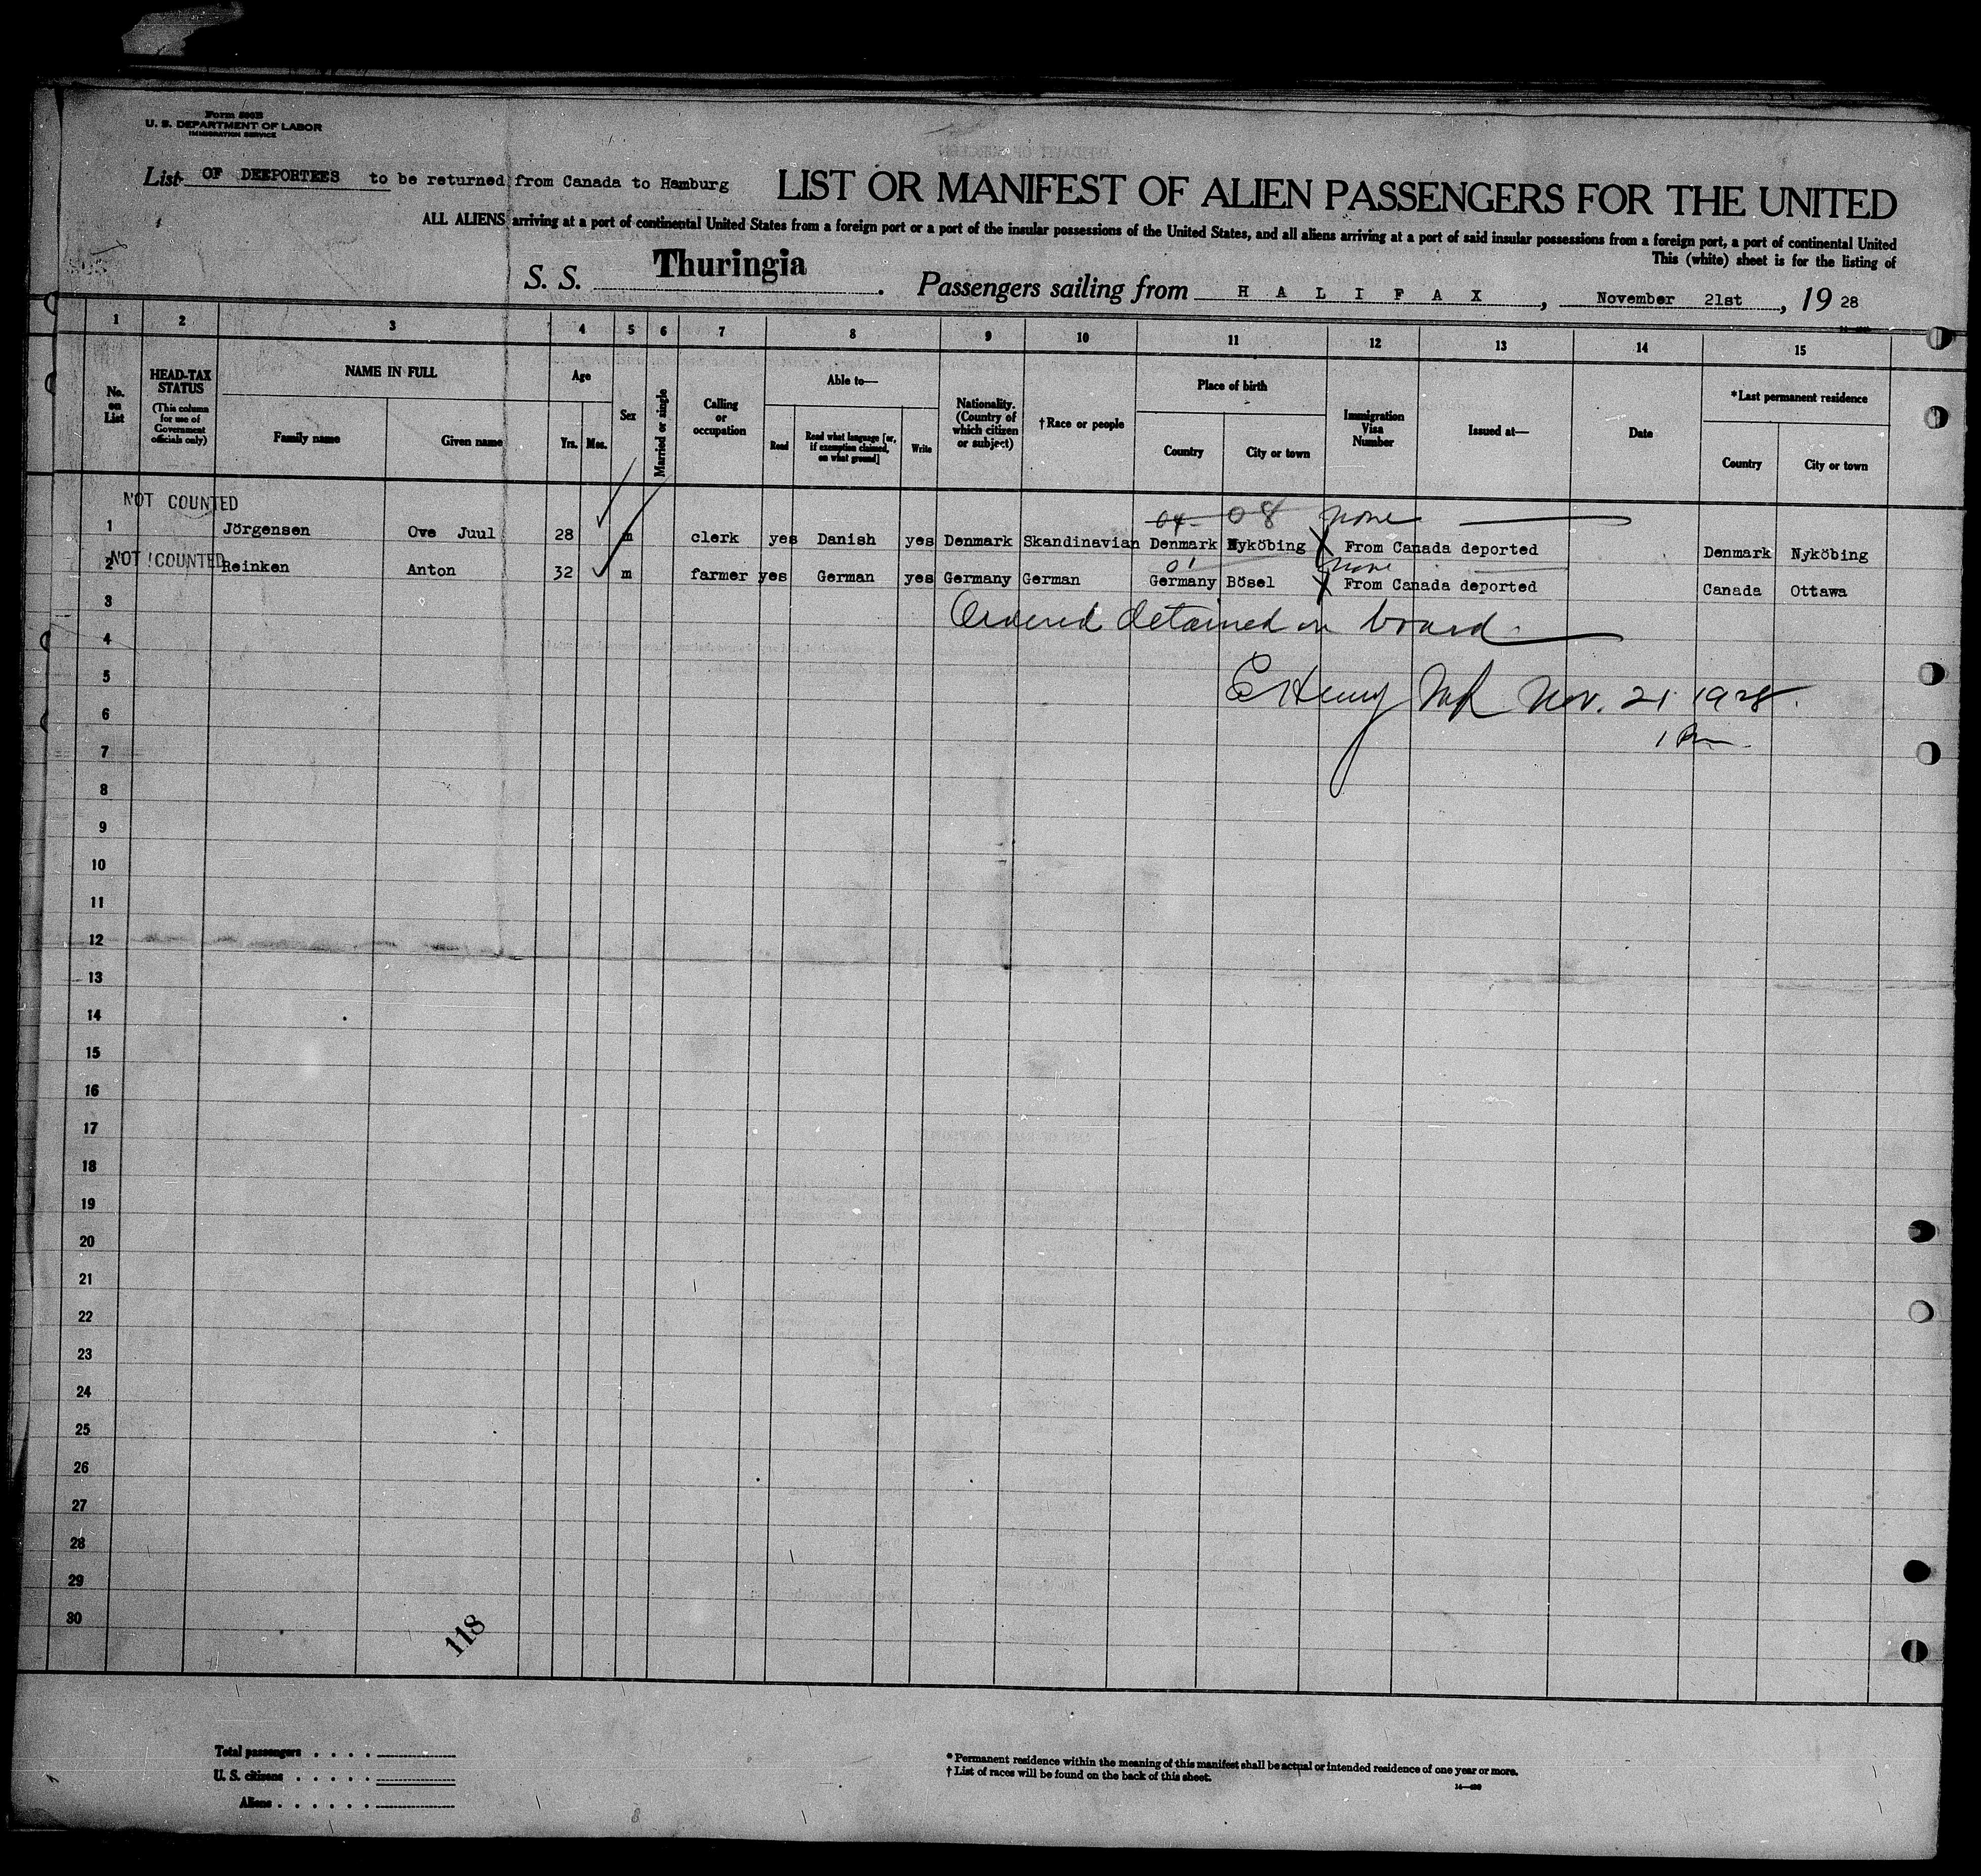 Form 500B
U. S. DEPARTMENT OF LABOR
IMMIGRATION SERVICE
List OF DEEPORTEES to be returned from Canada to Hamburg
LIST OR MANIFEST OF ALIEN PASSENGERS FOR THE UNITED
ALL ALIENS arriving at a port of continental United States from a foreign port or a port of the insular possessions of the United States, and all aliens arriving at a port of said insular possessions from a foreign port, a port of continental United
This (white) sheet is for the listing of
S. S. Thuringia. Passengers sailing from H A L I F A X, November 21st, 19 28
1 2 3 4 5 6 7 8 9 10 11 12 13 14 15
No. on List
HEAD-TAX STATUS
(This column for use of Government officials only)
NAME IN FULL
Family name
Given name
Age
Yrs.
Mos.
Sex
Married or single
Calling or occupation
Able to—
Read
Read what language [or, if exemption claimed, on what ground]
Write
Nationality. (Country of which citizen or subject)
†Race or people
Place of birth
Country
City or town
Immigration Visa Number
Issued at—
Date
*Last permanent residence
Country
City or town
NOT COUNTED
04 08 none
1 Jörgensen Ove Juul 28 m clerk yes Danish yes Denmark Skandinavian Denmark Nyköbing From Canada deported Denmark Nyköbing
NOT COUNTED
01 none
2 Reinken Anton 32 m farmer yes German yes Germany German Germany Bösel From Canada deported Canada Ottawa
3
Ordered detained on board
4
5
Nov. 21 1928.
6
1 Pm
7
8
9
10
11
12
13
14
15
16
17
18
19
20
21
22
23
24
25
26
27
28
29
30
118
Total passengers
U. S. citizens
Aliens
* Permanent residence within the meaning of this manifest shall be actual or intended residence of one year or more.
† List of races will be found on the back of this sheet.